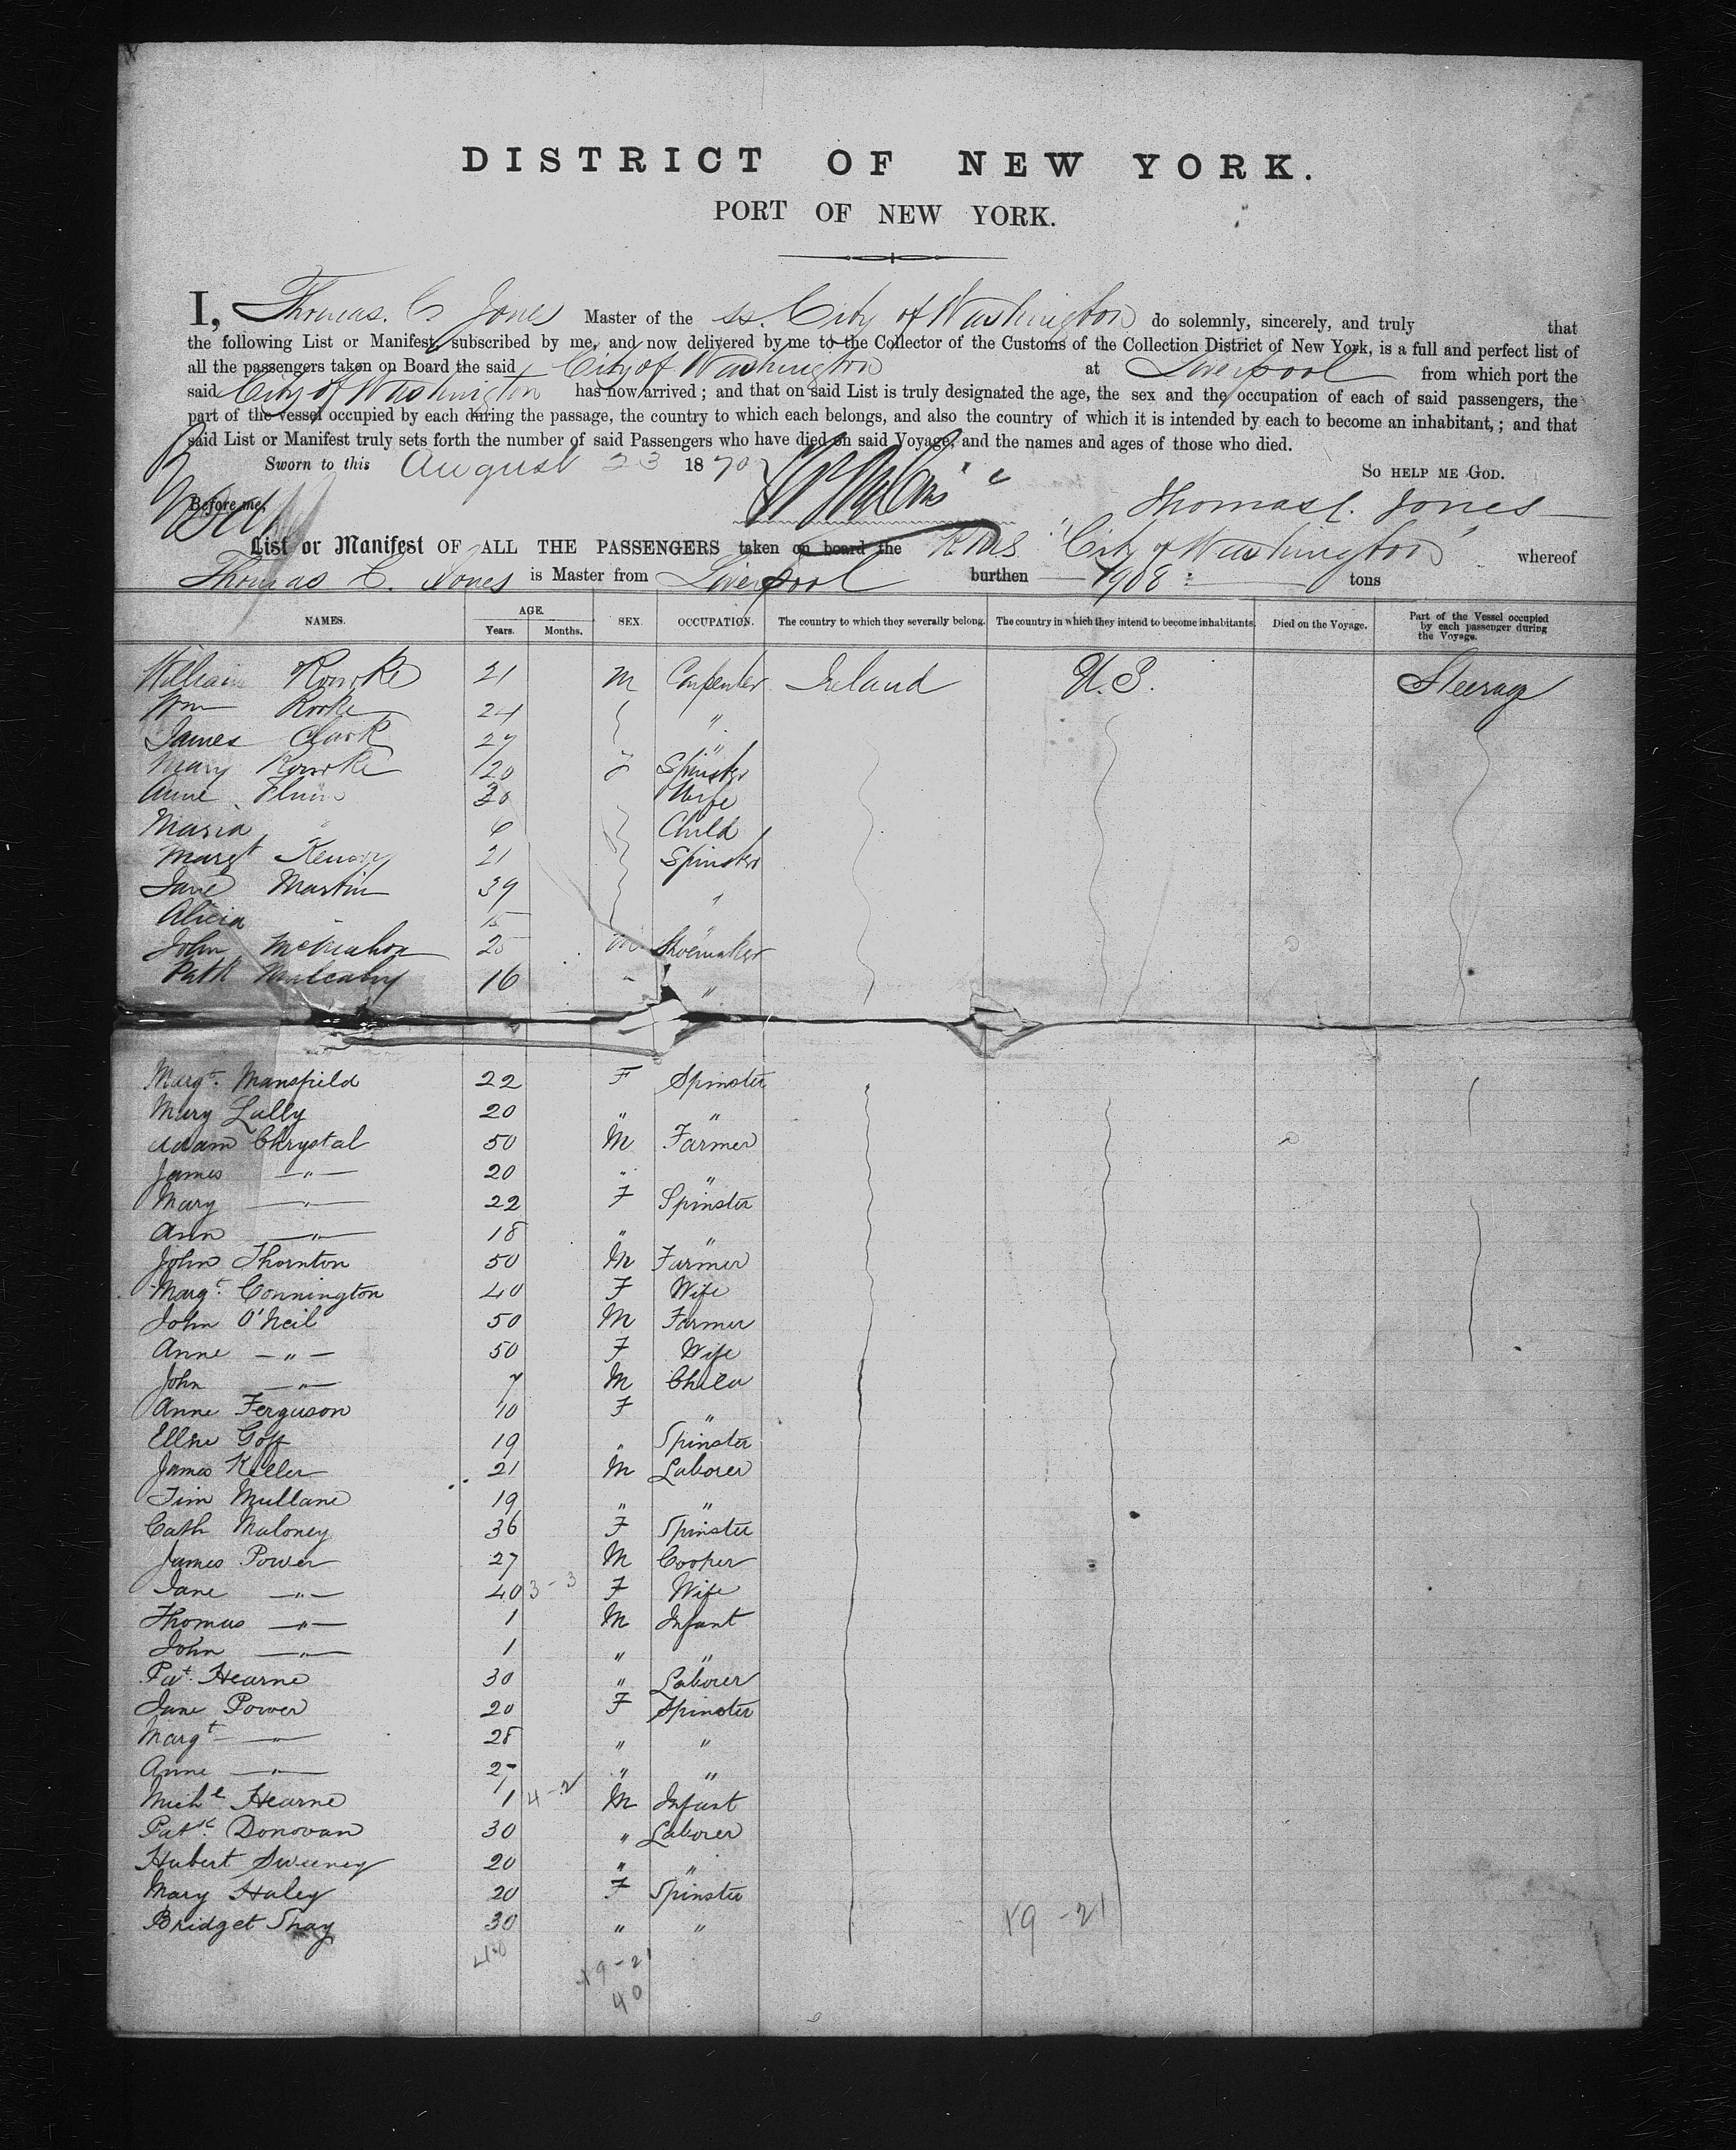 DISTRICT OF NEW YORK.
PORT OF NEW YORK.
I, Thomas. C. Jones Master of the ss. City of Washington do solemnly, sincerely, and truly that
the following List or Manifest, subscribed by me, and now delivered by me to the Collector of the Customs of the Collection District of New York, is a full and perfect list of
all the passengers taken on Board the said City of Washington at Liverpool from which port the
said City of Washington has now arrived; and that on said List is truly designated the age, the sex and the occupation of each of said passengers, the
part of the vessel occupied by each during the passage, the country to which each belongs, and also the country of which it is intended by each to become an inhabitant,; and that
said List or Manifest truly sets forth the number of said Passengers who have died on said Voyage, and the names and ages of those who died.
Sworn to this August 23 1870 SO HELP ME GOD.
Before me, Thomas C. Jones
List or Manifest OF ALL THE PASSENGERS taken on board the RMS City of Washington whereof
Thomas C. Jones is Master from Liverpool burthen 1908 tons
NAMES. AGE. Years. Months. SEX. OCCUPATION. The country to which they severally belong. The country in which they intend to become inhabitants. Died on the Voyage. Part of the Vessel occupied by each passenger during the Voyage.
William Rourke 21 M Carpenter Ireland U.S. Steerage
Wm Rorke 24 "
James Clark 27 "
Mary Rourke 20 F Spinster
Anne Flinn 30 Wife
Maria " 6 Child
Margt 21 Spinster
Jane Martin 39 "
Alicia " 15 "
John McMahon 25 M Shoemaker
Patk Mulcahy 16 " "
Margt. Mansfield 22 F Spinster
Mary Lally 20 " "
Adam Chrystal 50 M Farmer
James — " — 20 " "
Mary — " — 22 F Spinster
Ann — " — 18 " "
John Thornton 50 M Farmer
Margt. Connington 40 F Wife
John O'Neil 50 M Farmer
Anne — " — 50 F Wife
John — " — 7 M Child
Anne Ferguson 10 F "
Ellen Goff 19 " Spinster
James Keller 21 M Laborer
Tim Mullane 19 " "
Cath Maloney 36 F Spinster
James Power 27 M Cooper
Jane — " — 40 3-3 F Wife
Thomas — " — 1 M Infant
John — " — 1 " "
Pat. Hearne 30 " Laborer
Jane Power 20 F Spinster
Margt — " — 28 " "
Anne — " — 2- " "
Michl Hearne 1 4-2 M Infant
Patk. Donovan 30 " Laborer
Hubert Sweeney 20 " "
Mary Haley 20 F Spinster
Bridget Shay 30 " " 19-21
40 19-21
40